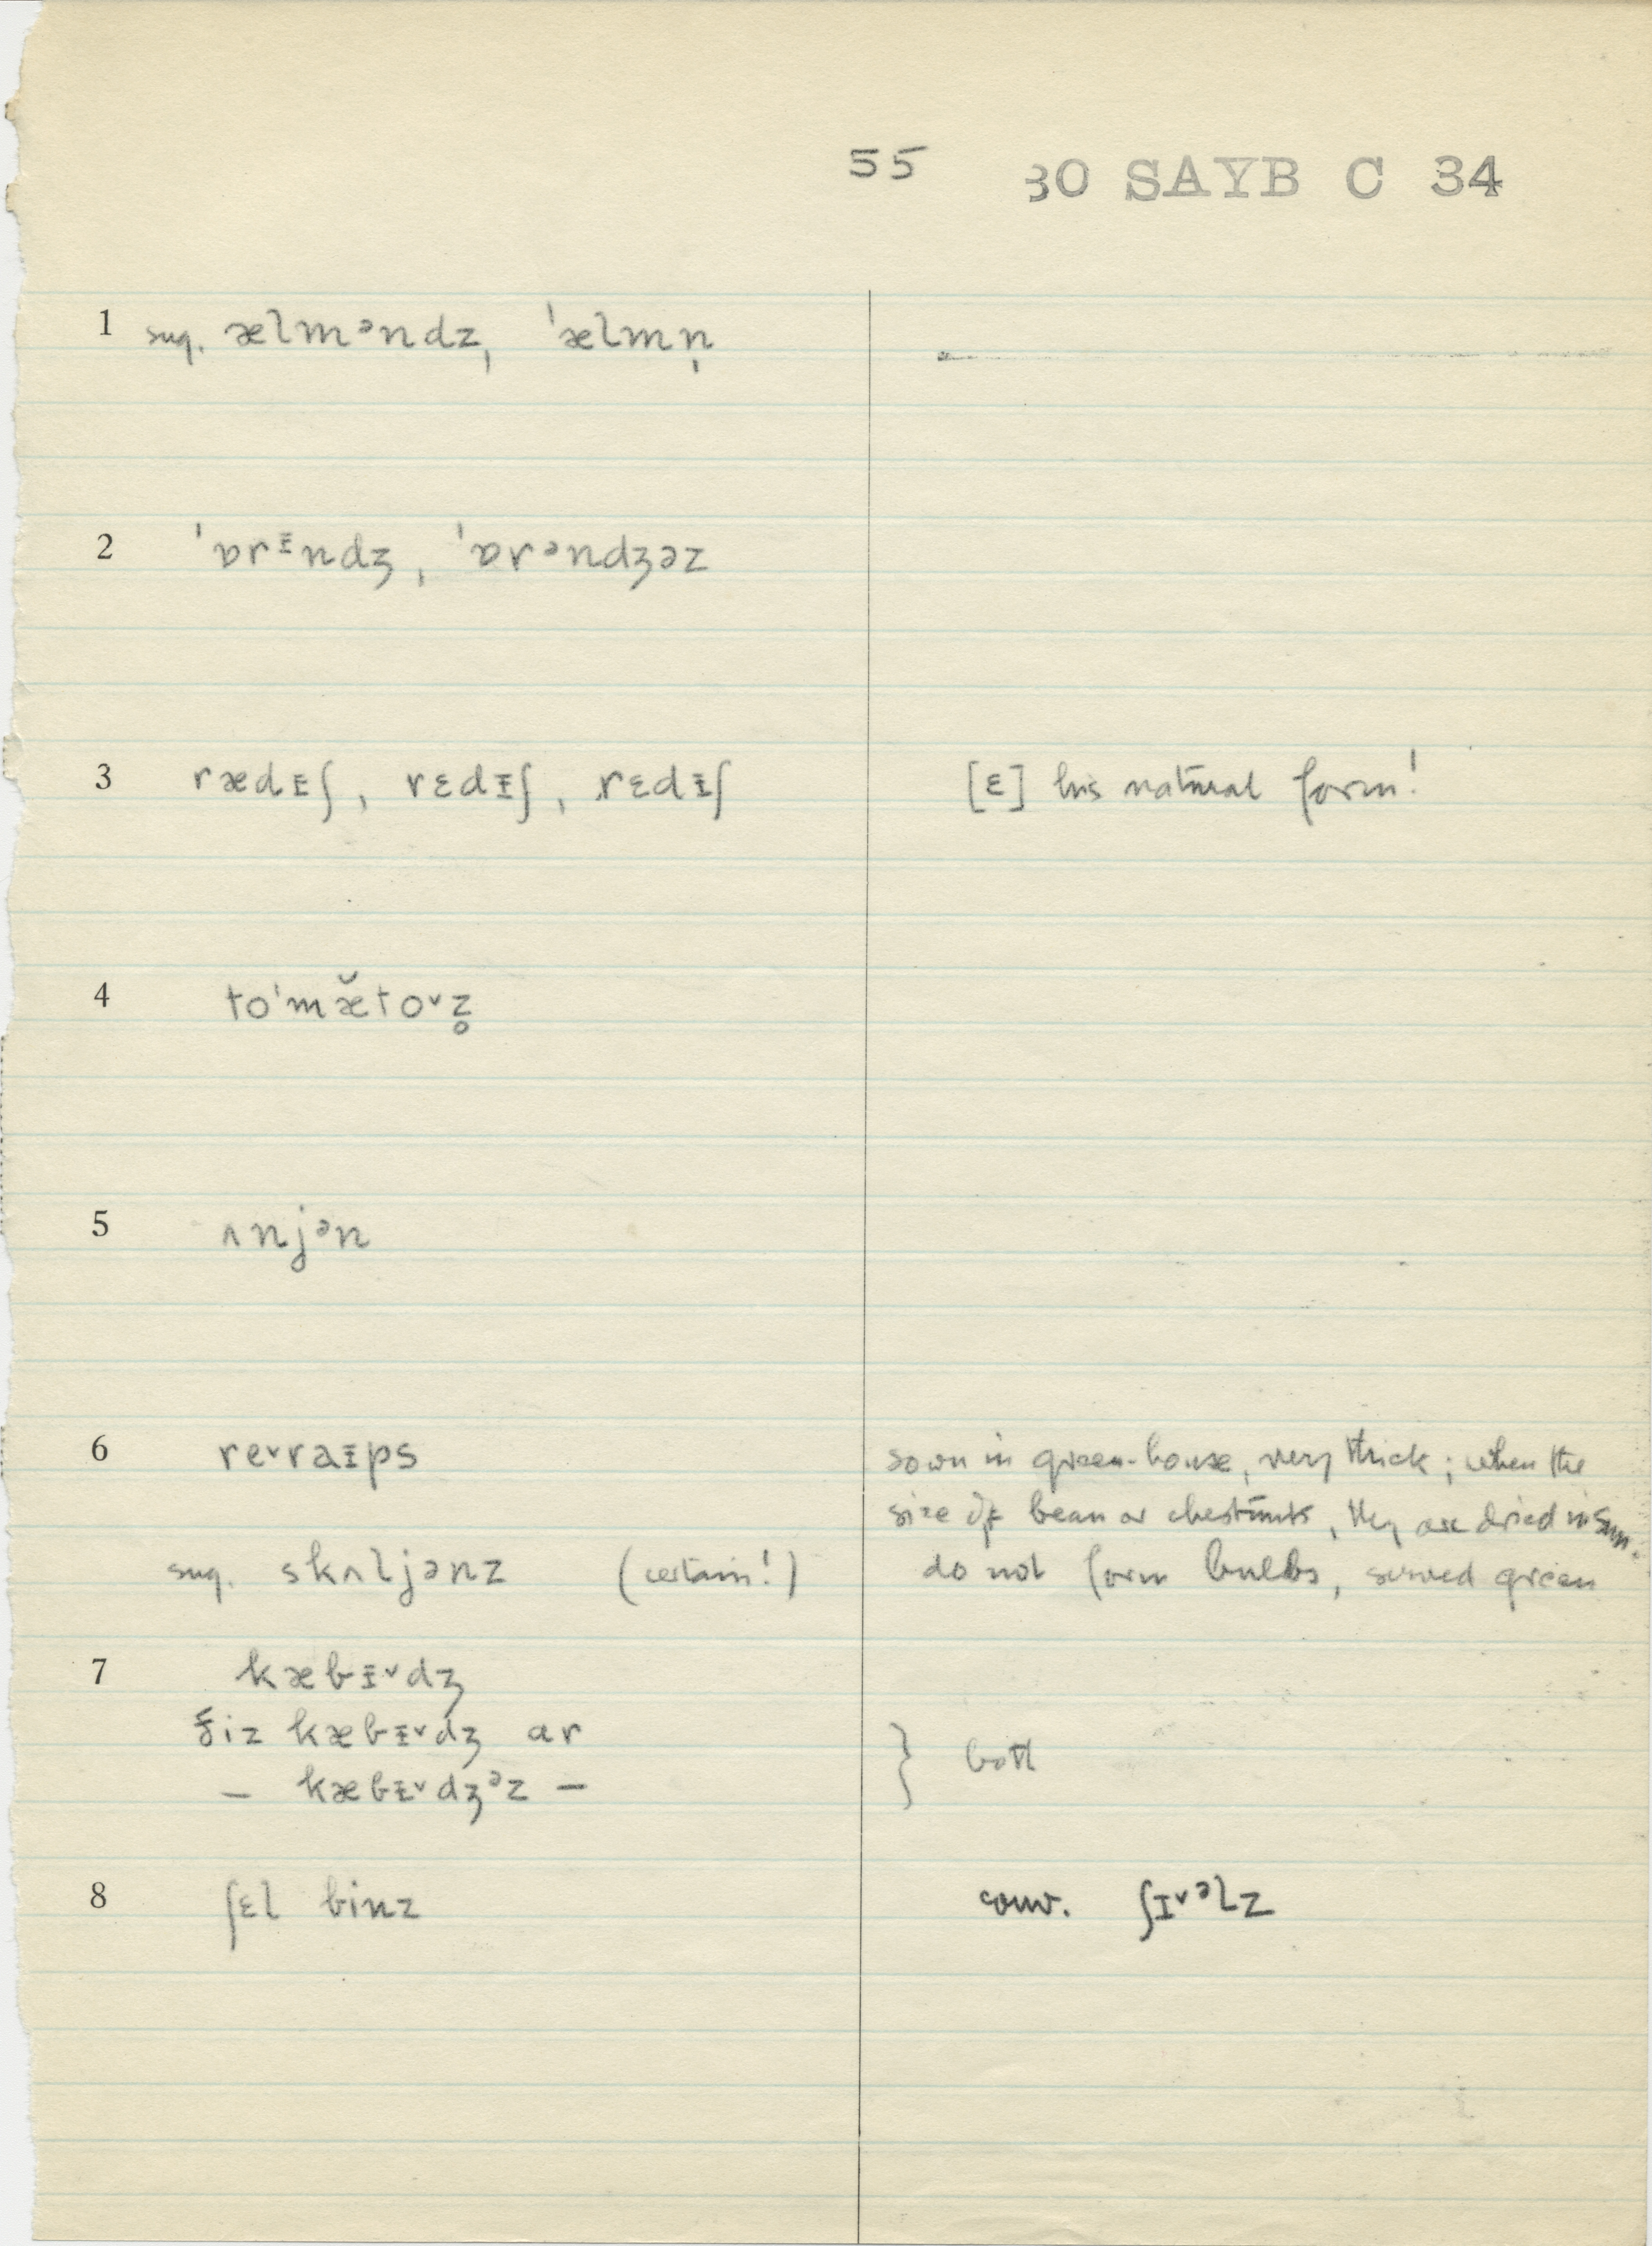 55 30 SAYB C 34
1 sug. ælmᵊndz, ˈælmn̩
2 ˈɒrᵻndʒ, ˈɒrᵊndʒəz
3 rædᵻʃ, rɛdᵻʃ, rɛdᵻʃ [ɛ] his natural form!
4 toˈmæ̆to˅z̥
5 ʌnjᵊn
6 re˅raᵻps sown in green-house, very thick; when the
size of bean or chestnuts, they are dried in sun.
sug. skʌljənz (certain!) do not form bulbs, served green
7 kæbᵻ˅dʒ
ðiz kæbᵻ˅dʒ ar
— kæbᵻ˅dʒᵊz — } both
8 ʃɛl binz conv. ʃɪ˅ᵊlz